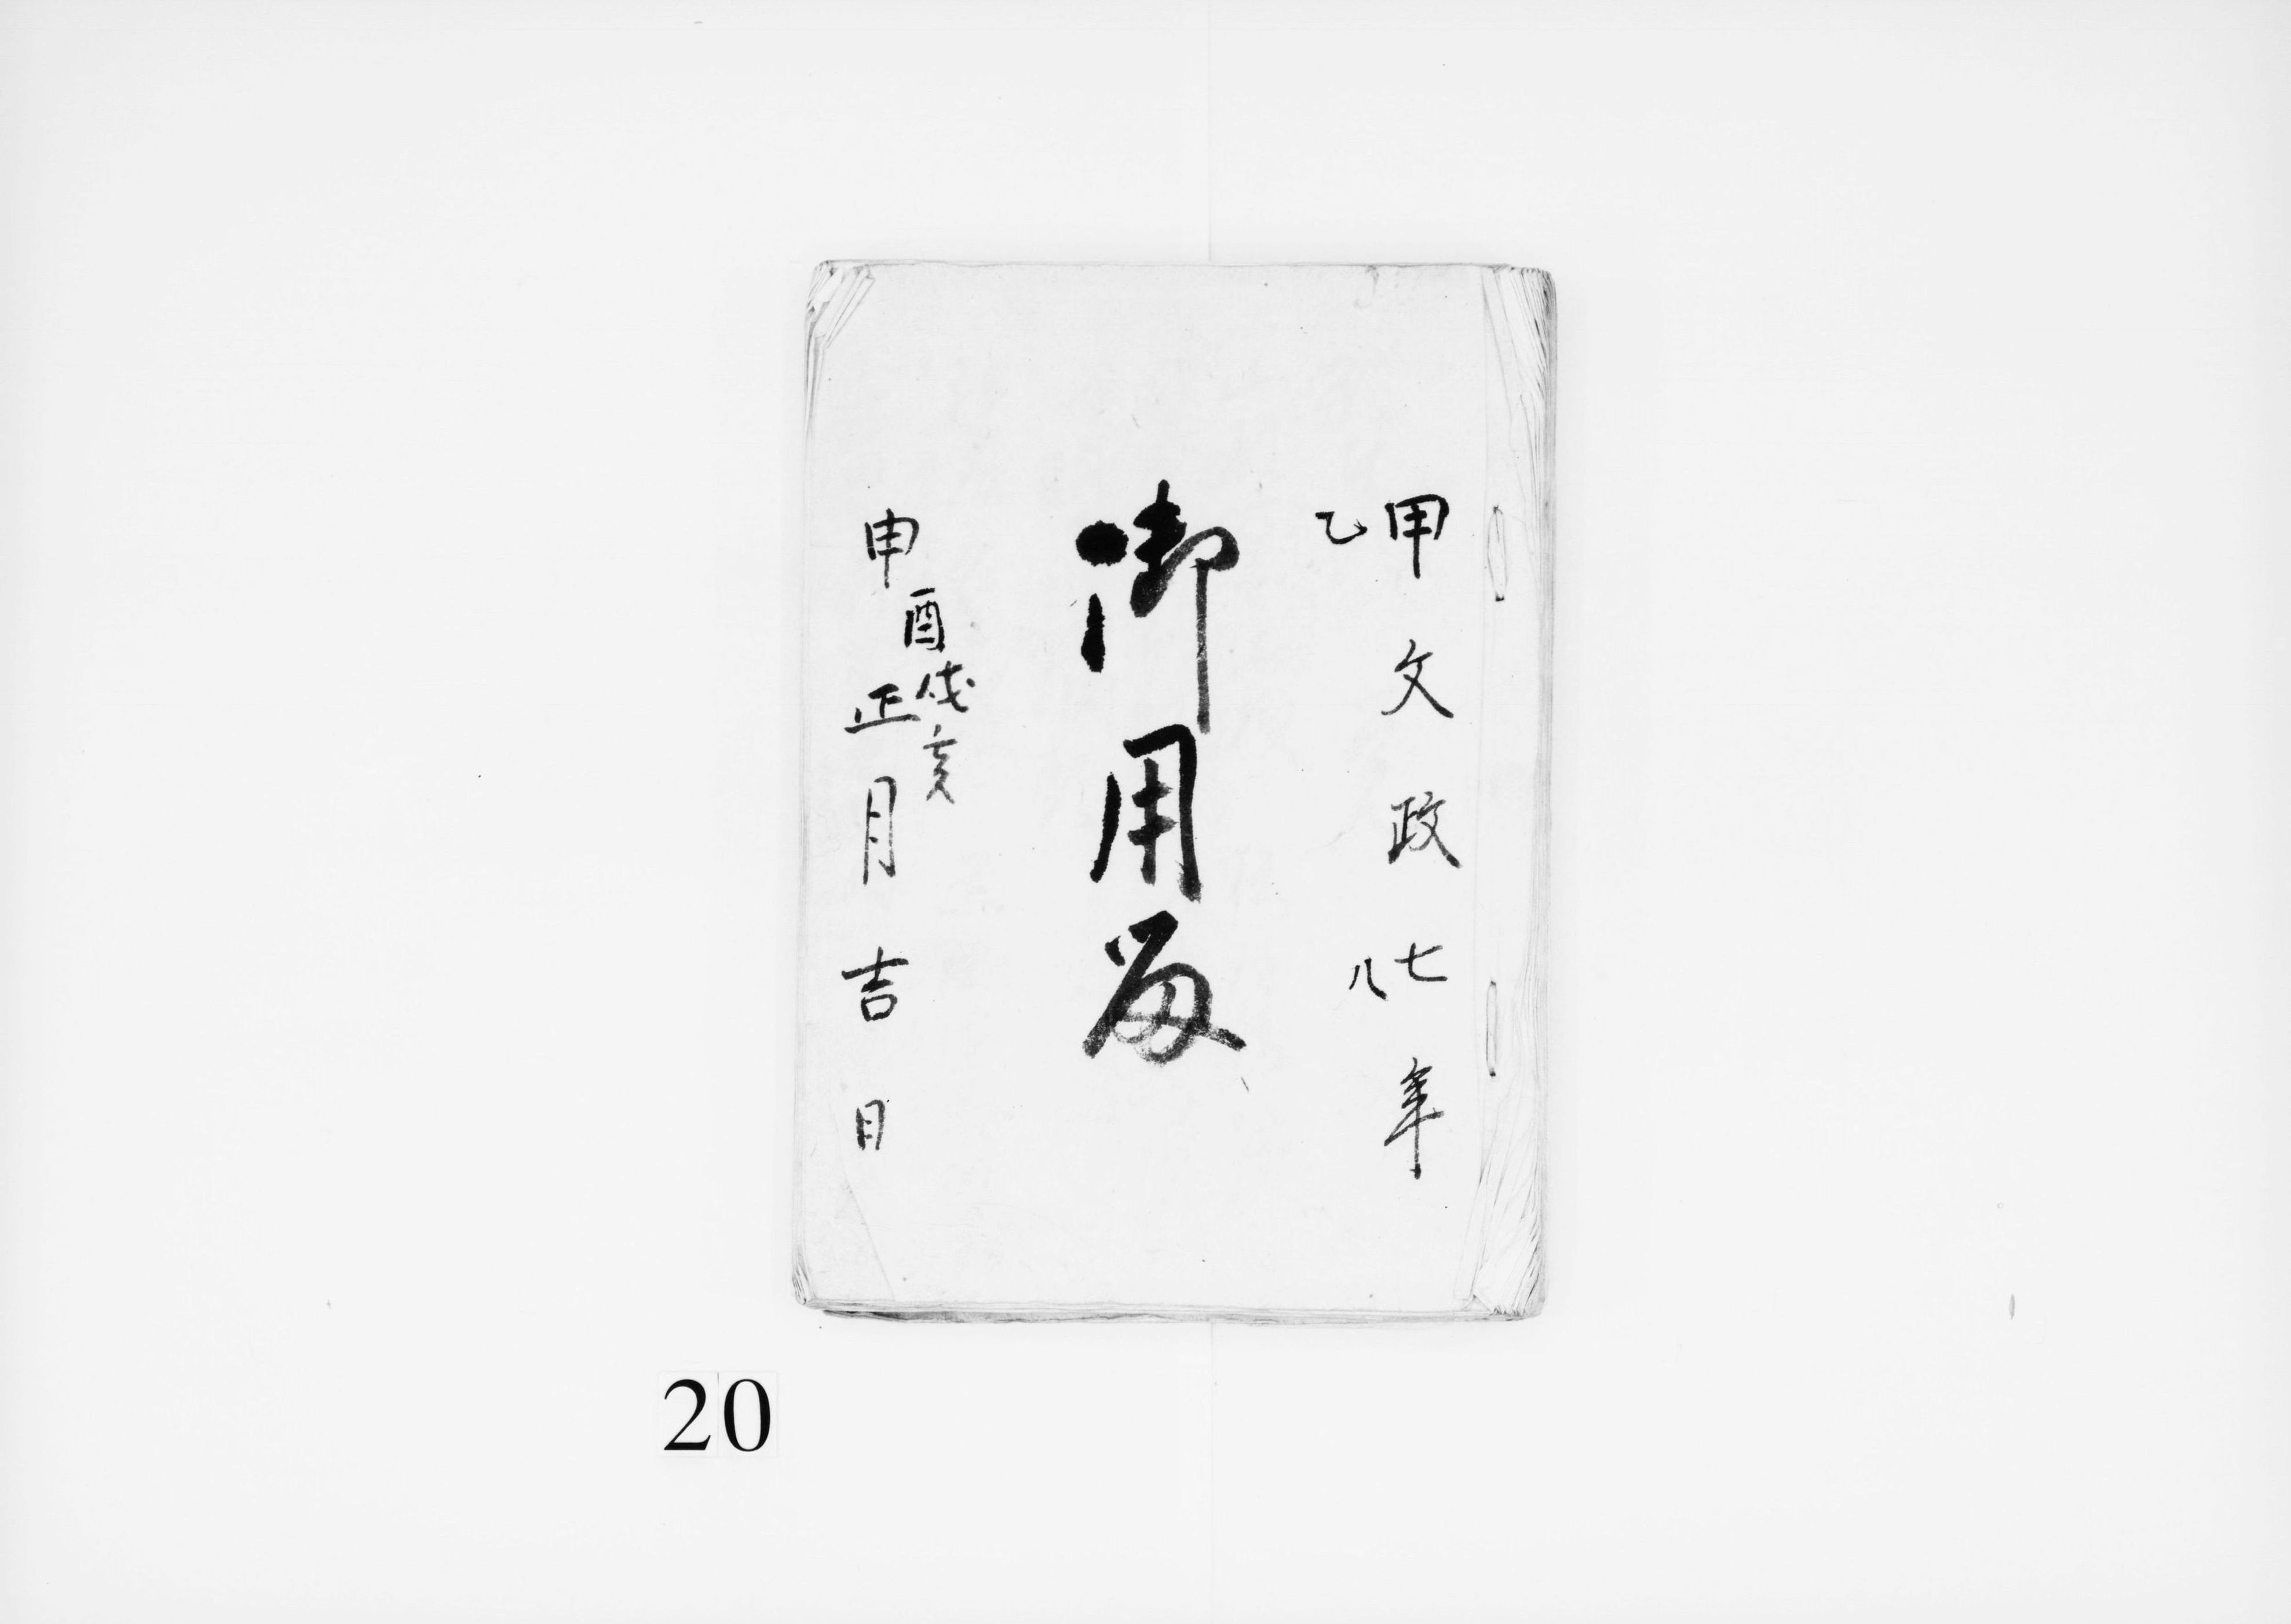 甲文政七年
乙八
御用留
酉戌亥
申正月吉日
20